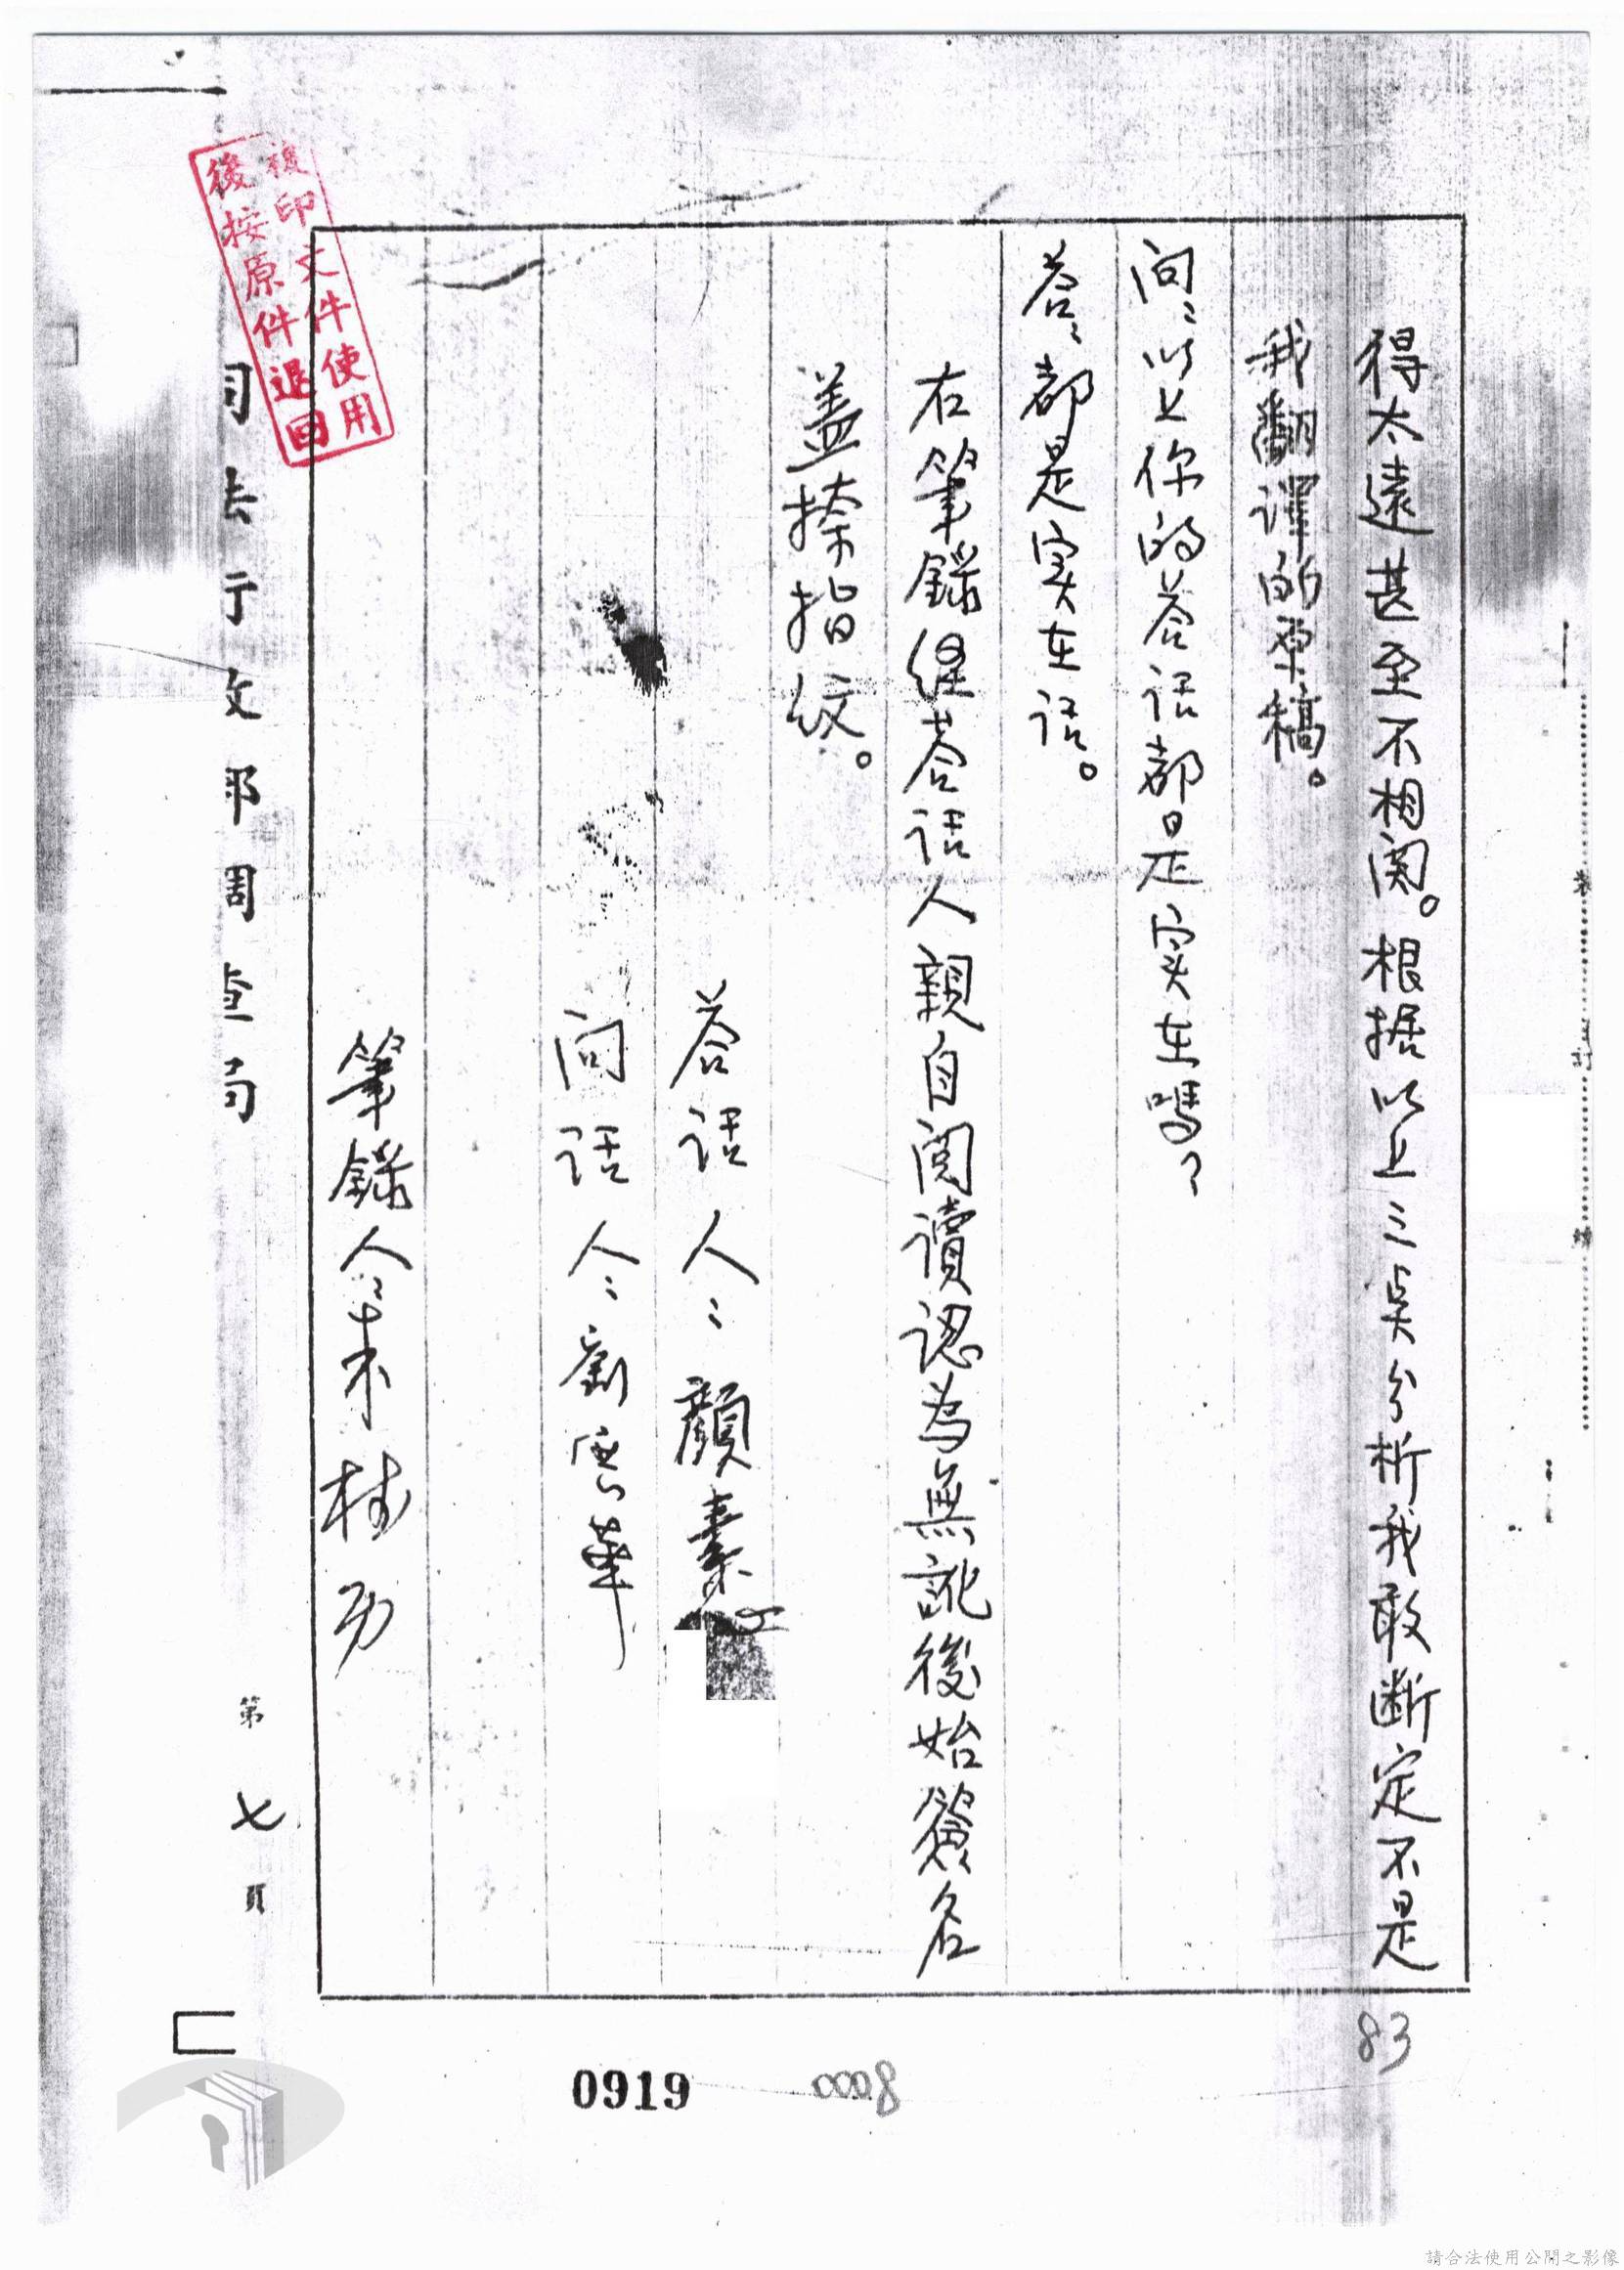 得太遠甚至不相関。根据以上三点分析我敢断定不是
我翻譯的原稿。
問：以上你的荅话都是实在嗎？
荅：都是实在话。
右筆錄經荅话人親自閲讀認為無訛後始簽名
盖捺指紋。
荅话人：顏素
问话人：劉 華
筆錄人：
司法行政部調查局
第七頁
複印文件使用
後按原件退回
83
0919
8000
請合法使用公開之影像